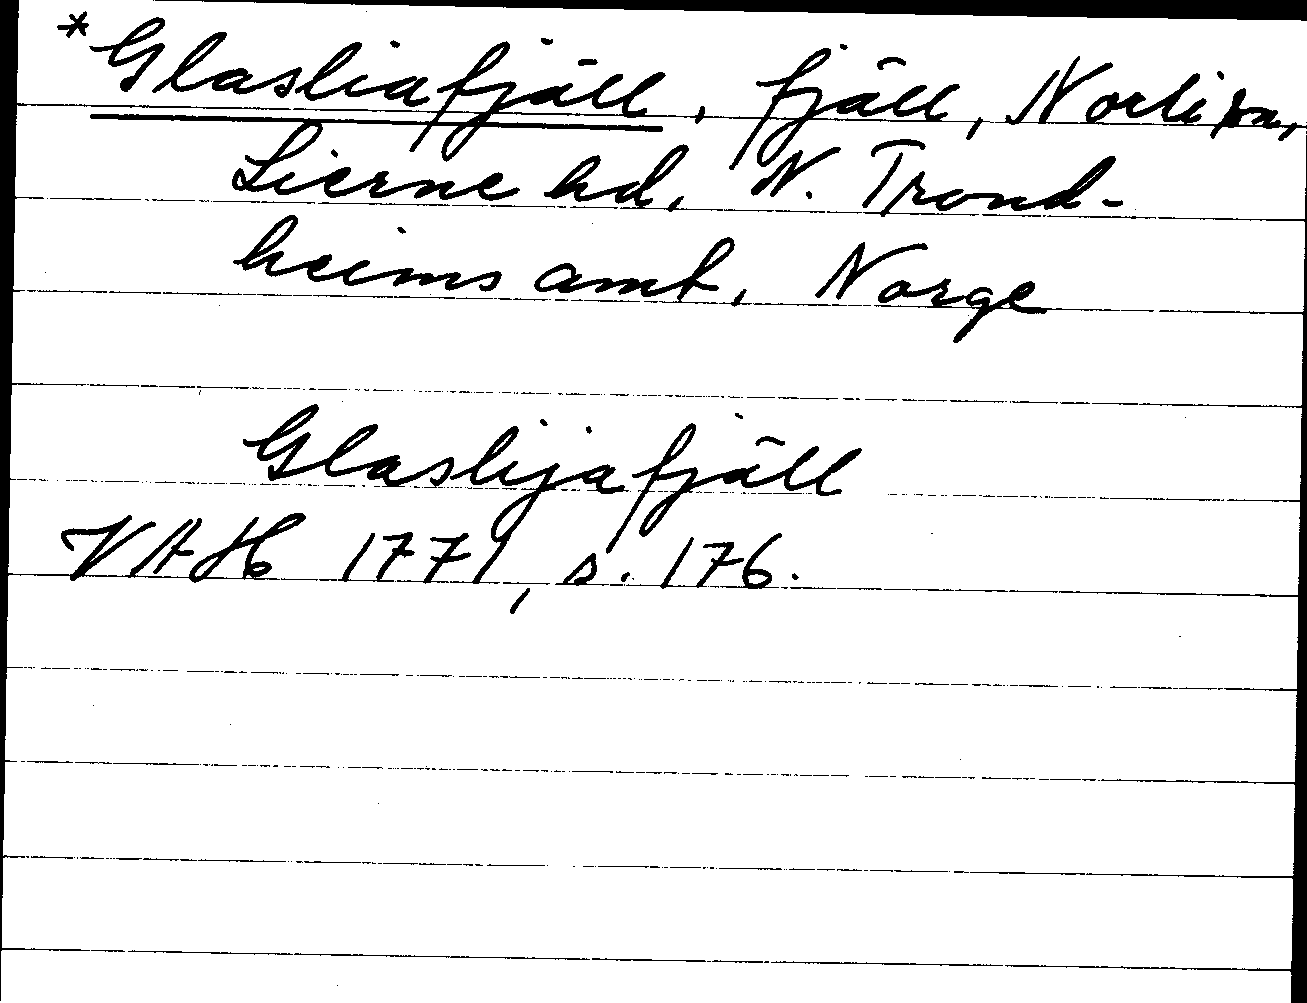 *Glasliafjäll, fjäll, Nordli sn,
Lierne hd, N. Trond-
heims amt, Norge
Glaslijafjäll
VAH 1771, s. 176.